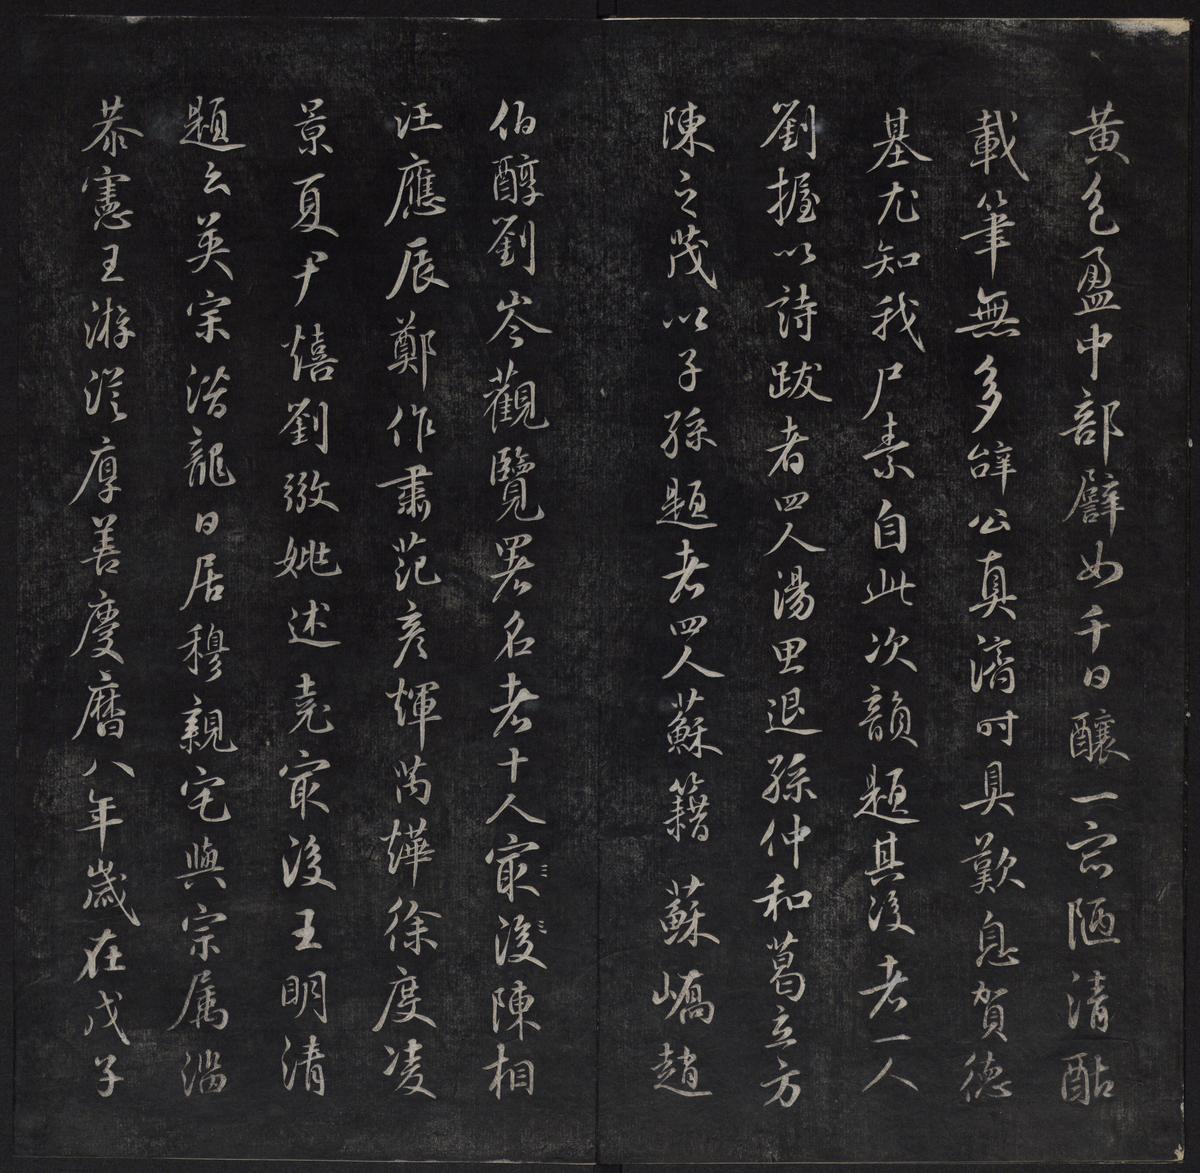 黄色盈中部譬如千日釀一宗陋清酤
載筆無多辞公真濟時具歎息賀德
基尤知我尸素自此次韻題其後者一人
劉握以詩跋者四人湯思退孫仲和葛立方
陳之茂以子孫題者四人蘇籍蘇嶠趙
伯醇劉岑觀覽署名者十人冣後陳相
汪應辰鄭作肅范彦輝芮燁徐度凌
景夏尹熺劉敬姚述堯冣後王明清
題云英宗潜龍日居穆親宅與宗属濮
恭憲王游從厚善慶曆八年歲在戊子